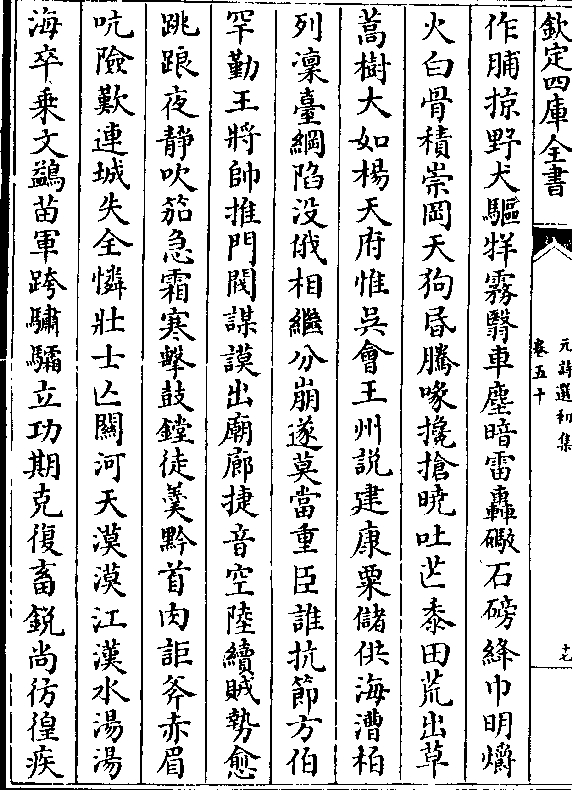 欽定四庫全書
元詩選初集
卷五十
十七
作脯掠野犬驅牂霧翳車塵暗雷轟礮石磅絳巾明爝
火白骨積崇岡天狗昏騰喙攙搶曉吐芒黍田荒出草
蒿樹大如楊天府惟吳會王州説建康粟儲供海漕柏
列凜臺綱陷没俄相繼分崩遂莫當重臣誰抗節方伯
罕勤王將帥推門閥謀謨出廟廊捷音空陸續賊勢愈
跳踉夜靜吹笳急霜寒擊鼓鏜徒羮黔首肉詎斧赤眉
吭險歎連城失全憐壯士亾關河天漠漠江漢水湯湯
海卒乗文鷁苗軍跨驌驦立功期克復畜鋭尚彷徨疾